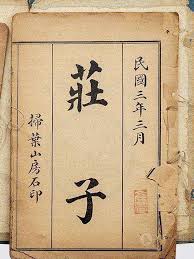 民國三年三月
莊子
掃葉山房石印